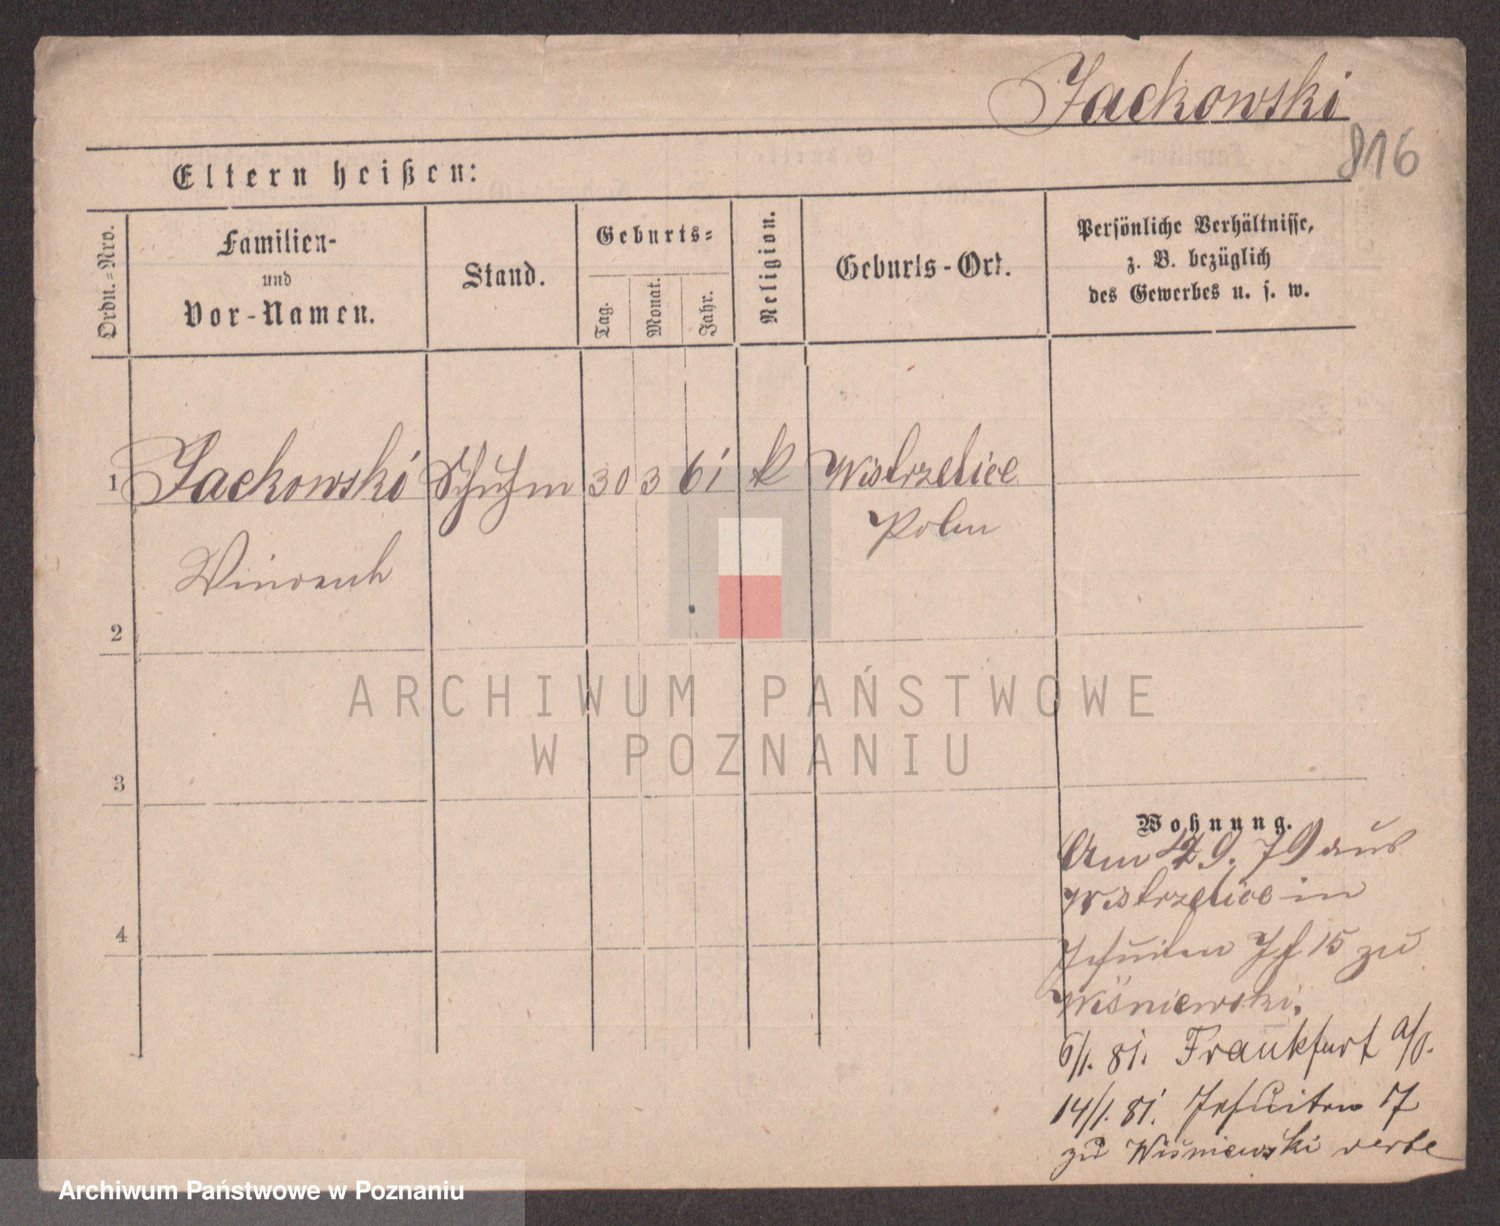 Jackowski
816
Eltern heißen:
Ordn.-Nro.
Familien-
und
Vor-Namen.
Stand.
Geburts-
Tag.
Monat.
Jahr.
Religion.
Geburts-Ort.
Persönliche Verhältnisse,
z. B. bezüglich
des Gewerbes u. s. w.
1 Jackowski Schuhm 30 3 61 k Wistrzelice
Polen
2
3
4
ARCHIWUM PAŃSTWOWE
W POZNANIU
Wohnung.
Am 9. 79 aus
Wistrzelice in
Jesuiten 15 zu
Wiśniewski.
6/1. 81. Frankfurt a/O.
14/1. 81. Jesuiten 17
zu Wiśniewski
Archiwum Państwowe w Poznaniu